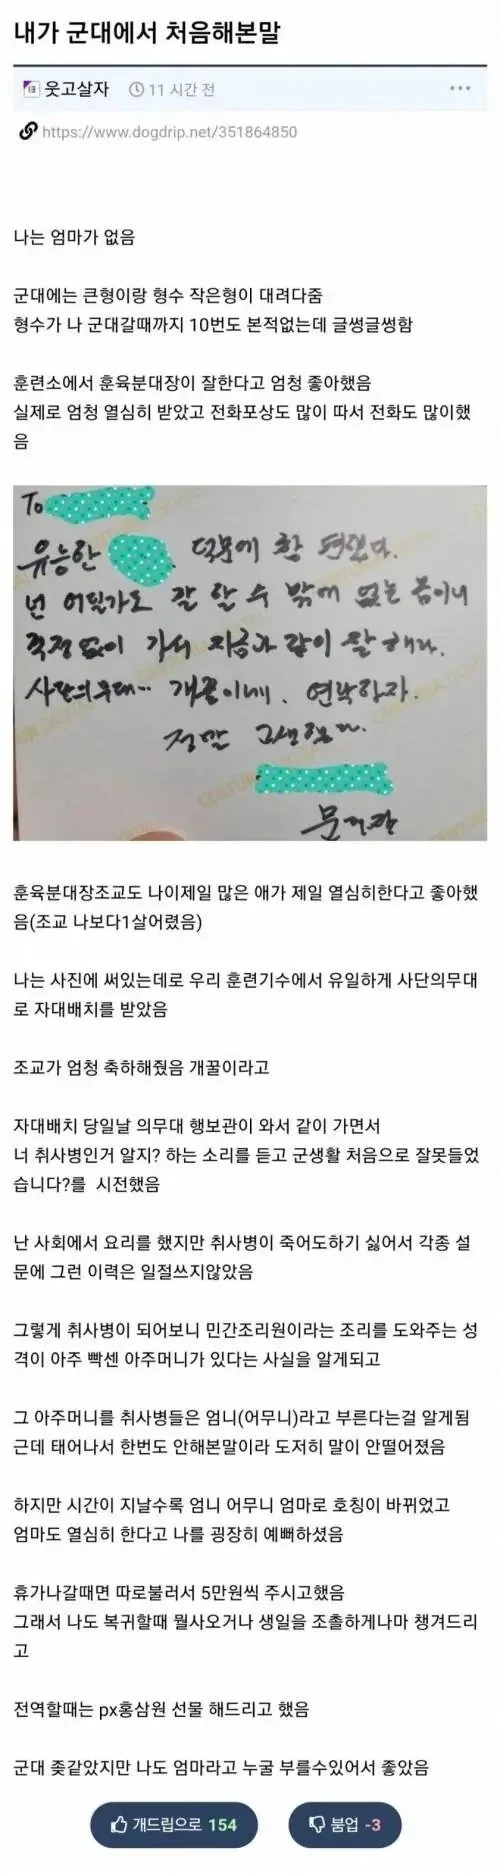 내가 군대에서 처음해본말
웃고살자 11 시간 전
https://www.dogdrip.net/351864850
나는 엄마가 없음
군대에는 큰형이랑 형수 작은형이 대려다줌
형수가 나 군대갈때까지 10번도 본적없는데 글썽글썽함
훈련소에서 훈육분대장이 잘한다고 엄청 좋아했음
실제로 엄청 열심히 받았고 전화포상도 많이 따서 전화도 많이했
음
To
유능한 덕문에 참 편했다.
넌 어딜가도 잘 할 수 밖에 없는 놈이니
걱정 없이 가서 지금과 같이 잘 해라.
사단의무대.. 개꿀이네. 연락하자.
정말 고생했다.
훈육분대장조교도 나이제일 많은 애가 제일 열심히한다고 좋아했
음(조교 나보다1살어렸음)
나는 사진에 써있는데로 우리 훈련기수에서 유일하게 사단의무대
로 자대배치를 받았음
조교가 엄청 축하해줬음 개꿀이라고
자대배치 당일날 의무대 행보관이 와서 같이 가면서
너 취사병인거 알지? 하는 소리를 듣고 군생활 처음으로 잘못들었
습니다?를 시전했음
난 사회에서 요리를 했지만 취사병이 죽어도하기 싫어서 각종 설
문에 그런 이력은 일절쓰지않았음
그렇게 취사병이 되어보니 민간조리원이라는 조리를 도와주는 성
격이 아주 빡센 아주머니가 있다는 사실을 알게되고
그 아주머니를 취사병들은 엄니(어무니)라고 부른다는걸 알게됨
근데 태어나서 한번도 안해본말이라 도저히 말이 안떨어졌음
하지만 시간이 지날수록 엄니 어무니 엄마로 호칭이 바뀌었고
엄마도 열심히 한다고 나를 굉장히 예뻐하셨음
휴가나갈때면 따로불러서 5만원씩 주시고했음
그래서 나도 복귀할때 뭘사오거나 생일을 조촐하게나마 챙겨드리
고
전역할때는 px홍삼원 선물 해드리고 했음
군대 좆같았지만 나도 엄마라고 누굴 부를수있어서 좋았음
개드립으로 154 붐업 -3